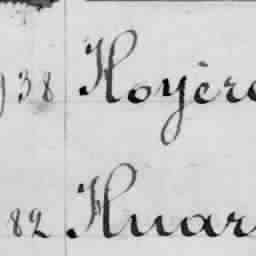 938 Hoyère
82 Huar